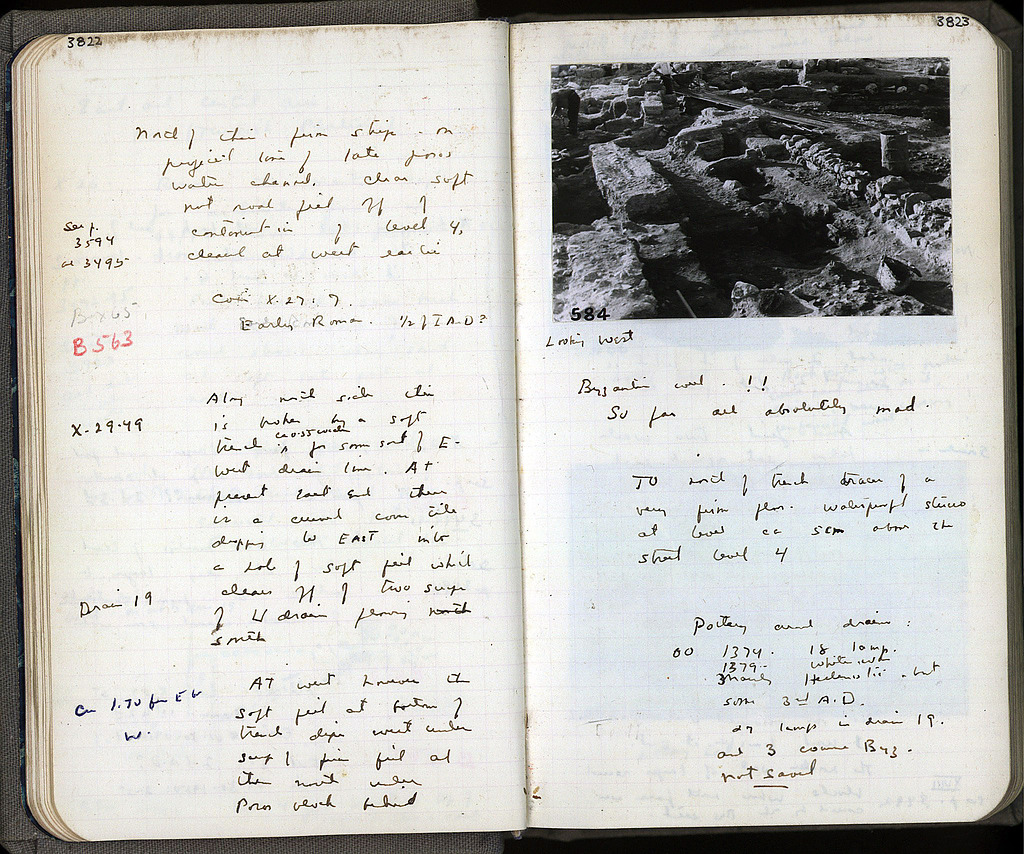 3822
North of this firm strip - on
projected line of late poros
water channel. clear soft
not road fill off of
continuation of level 4,
cleared at west earlier
See p.
3594
3495
Coin X.27:7.
Early Roman. 1/2 of I A.D?
B563
X-29-49
Along north side this
is broken by a soft
crosswise
trench for some sort of E-
West drain line. At
present East end there
is a curved cover tile
dipping to EAST into
a hole of soft fill which
clears off of two
of drain flowing north
south
Drain 19
AT west however the
soft fill at bottom of
trench dips west under
firm fill at
the north under
Poros block behind
ca 1.70 for E
W.
3823
584
Looking West
Byzantine . !!
So far all absolutely mad.
TO north of trench traces of a
very firm floor. waterproof stucco
at level ca 5cm above the
street level 4
Pottery around drain:
OO 1374. 18 lamp.
1379-
mainly Hellenistic - but
some 3rd A.D.
27 lamps in drain 19.
and 3 coarse Byz.
not saved